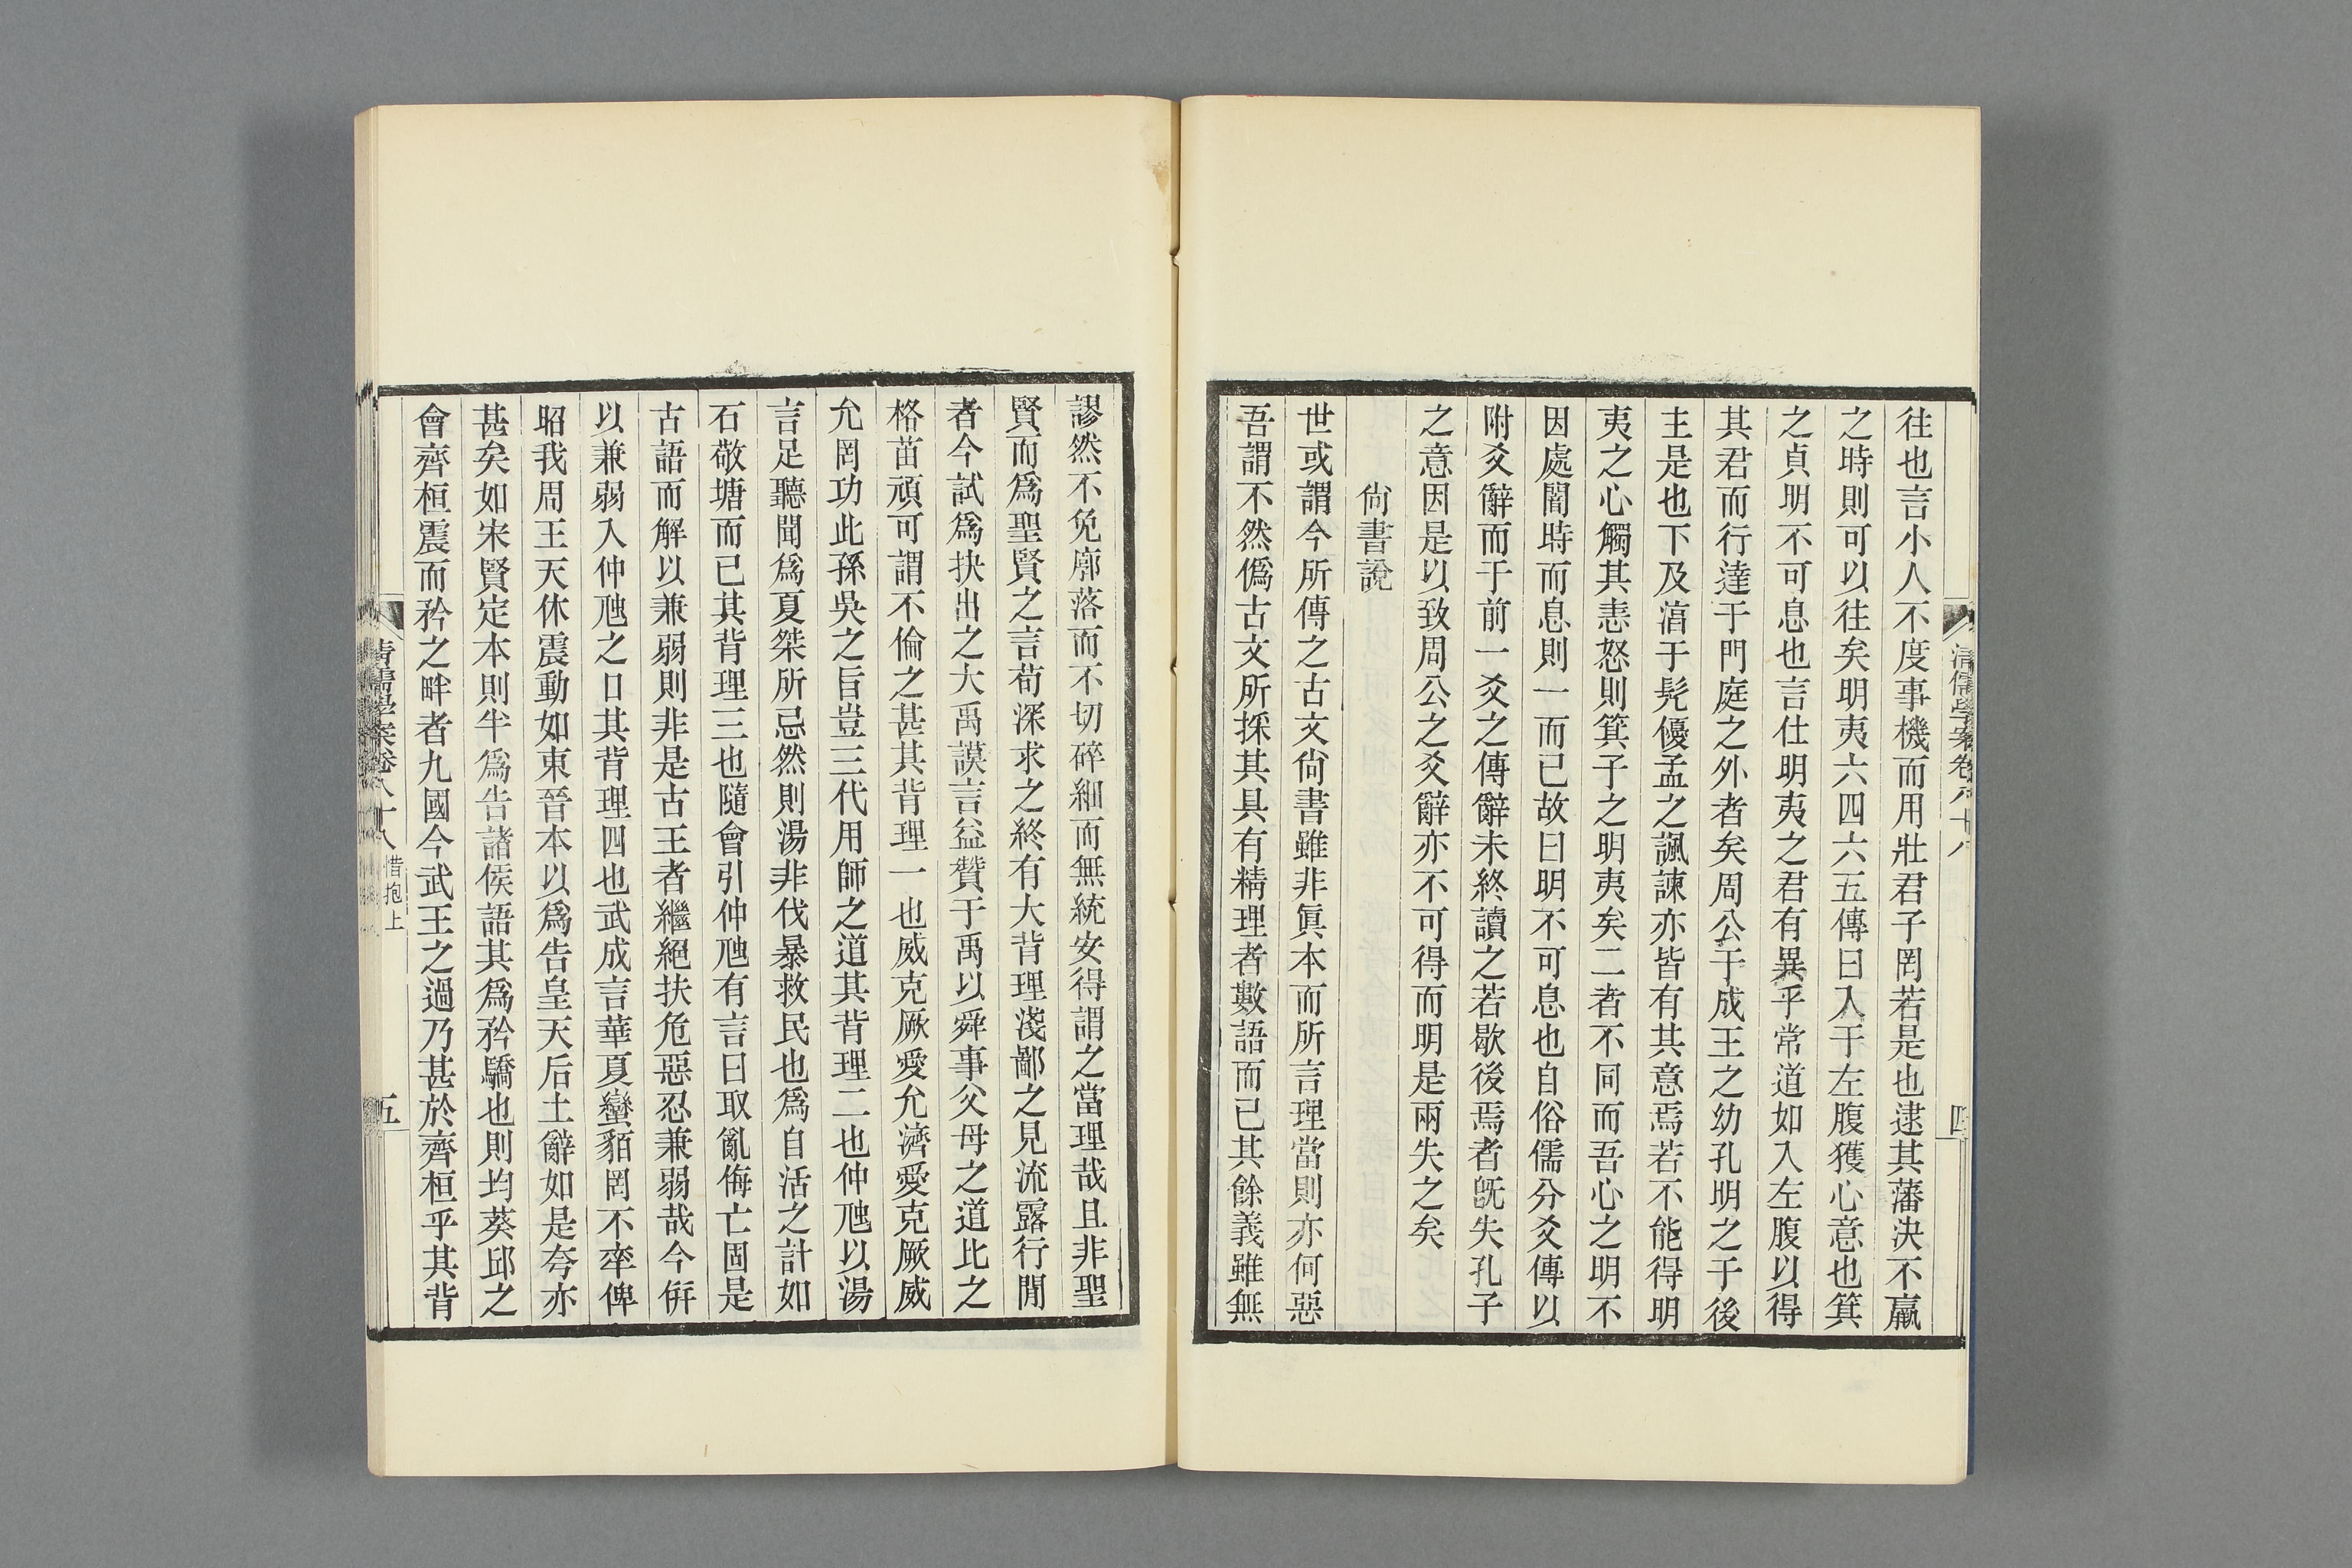 清儒學案卷八十八
四
往也言小人不度事機而用壯君子罔若是也逮其藩決不羸
之時則可以往矣明夷六四六五傳曰入于左腹獲心意也箕
之貞明不可息也言仕明夷之君有異乎常道如入左腹以得
其君而行達于門庭之外者矣周公于成王之幼孔明之于後
主是也下及湻于髠優孟之諷諫亦皆有其意焉若不能得明
夷之心觸其恚怒則箕子之明夷矣二者不同而吾心之明不
因處闇時而息則一而已故曰明不可息也自俗儒分爻傳以
附爻辭而于前一爻之傳辭未終讀之若歇後焉者旣失孔子
之意因是以致周公之爻辭亦不可得而明是兩失之矣
尙書說
世或謂今所傳之古文尙書雖非眞本而所言理當則亦何惡
吾謂不然僞古文所採其具有精理者數語而已其餘義雖無
謬然不免廓落而不切碎細而無統安得謂之當理哉且非聖
賢而爲聖賢之言苟深求之終有大背理淺鄙之見流露行閒
者今試爲抉出之大禹謨言益贊于禹以舜事父母之道比之
格苗頑可謂不倫之甚其背理一也威克厥愛允濟愛克厥威
允罔功此孫吳之旨豈三代用師之道其背理二也仲虺以湯
言足聽聞爲夏桀所忌然則湯非伐暴救民也爲自活之計如
石敬塘而已其背理三也隨會引仲虺有言曰取亂侮亡固是
古語而解以兼弱則非是古王者繼絕扶危惡忍兼弱哉今倂
以兼弱入仲虺之口其背理四也武成言華夏蠻貊罔不率俾
昭我周王天休震動如東晉本以爲告皇天后土辭如是夸亦
甚矣如宋賢定本則半爲告諸侯語其爲矜驕也則均葵邱之
會齊桓震而矜之畔者九國今武王之過乃甚於齊桓乎其背
清儒學案卷八十八 惜抱上
五